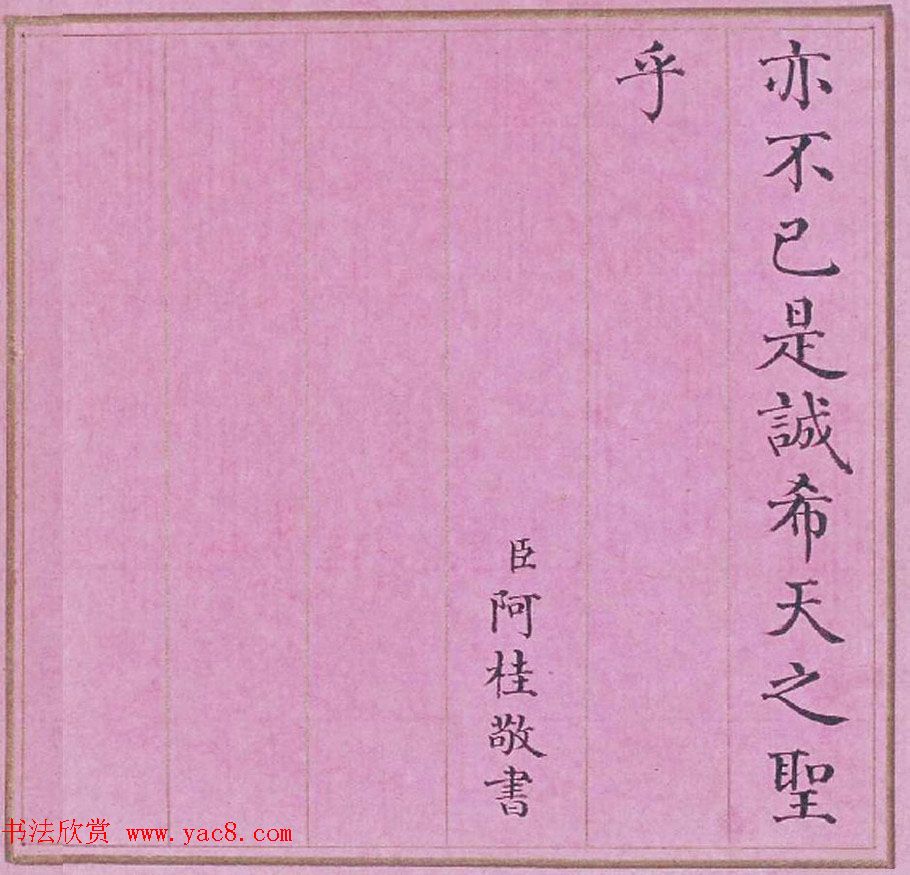 亦不已是誠希天之聖
乎
臣阿桂敬書
书法欣赏 www.yac8.com